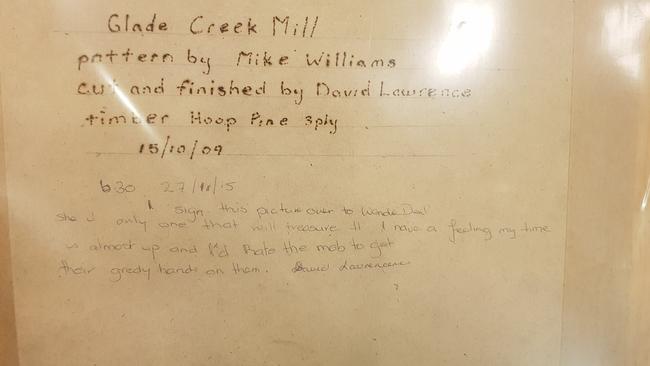 Glade Creek Mill
pattern by Mike Williams
cut and finished by David Lawrence
timber Hoop Pine 3ply
15/10/09
630 27/11/15
I sign this picture over to Wanda Deal
She is only one that will treasure it I have a feeling my time
is almost up and I'd hate the mob to get
their gredy hands on them. David Lawrence